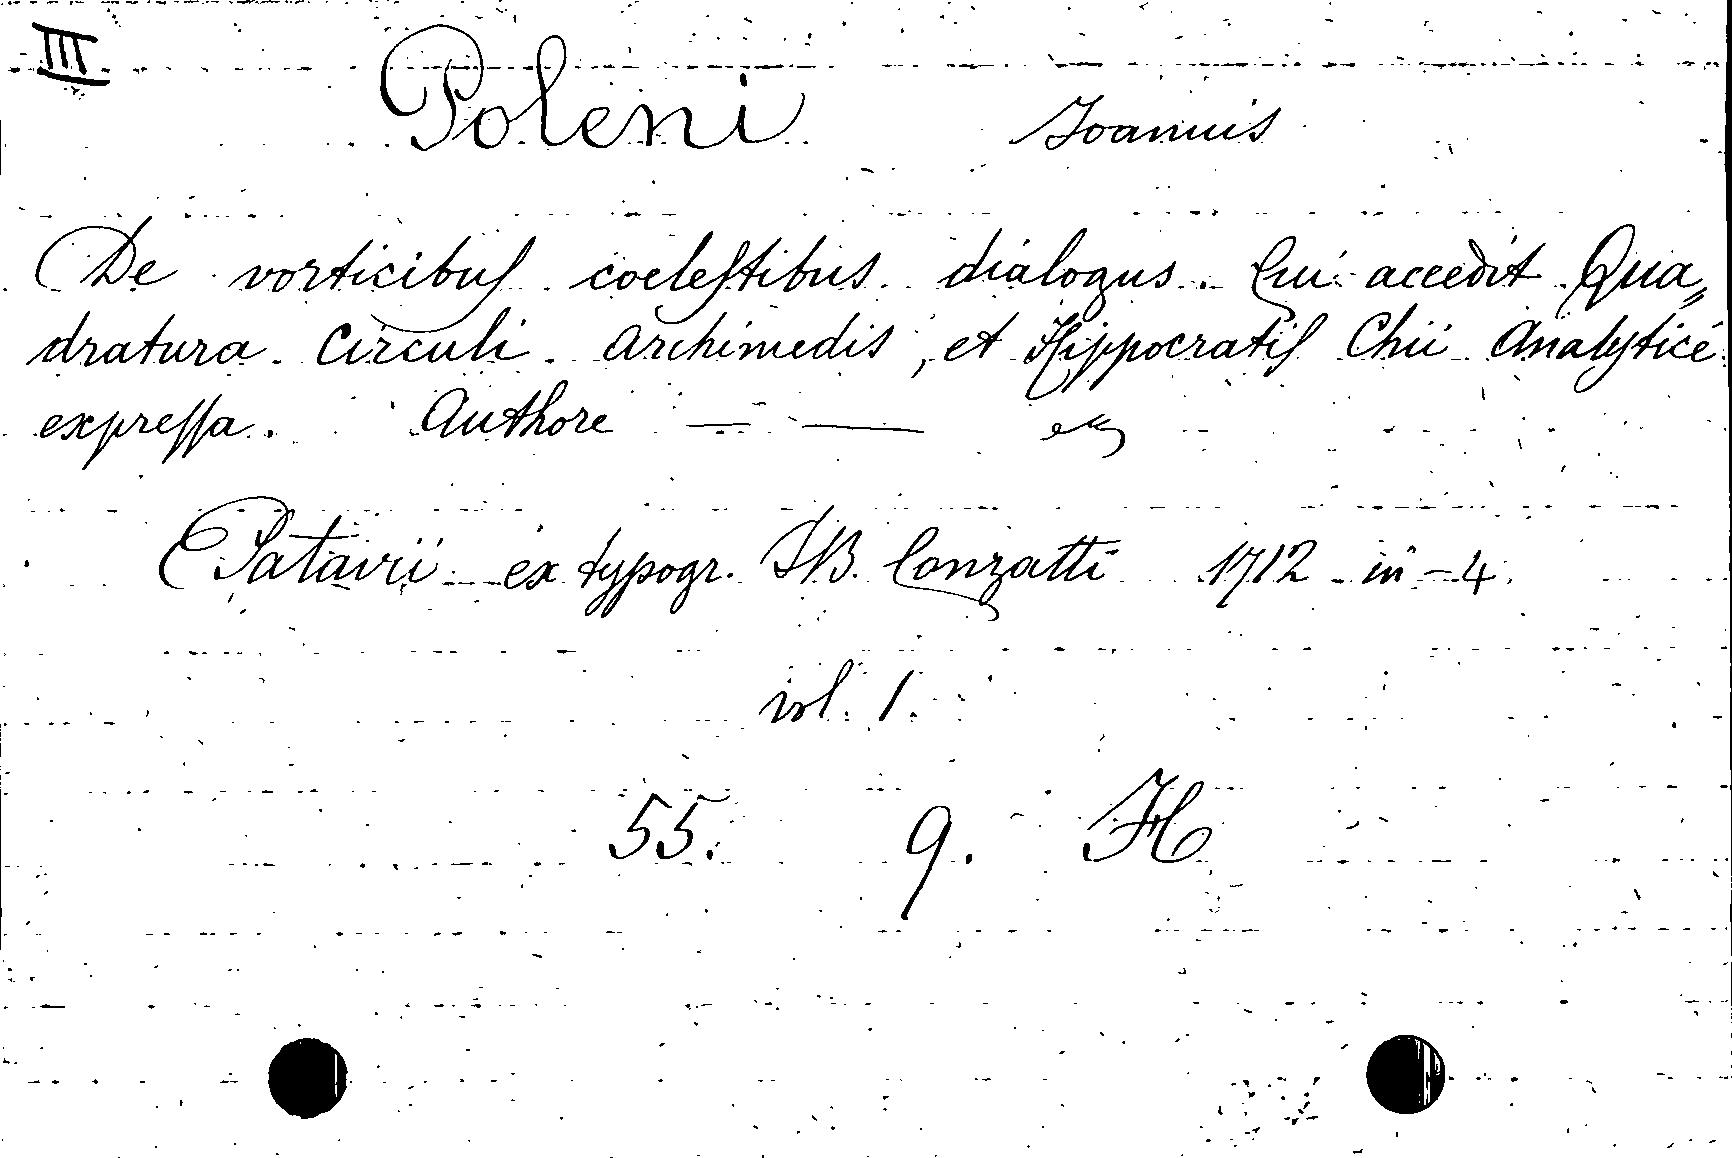 III
Poleni Joannis
De vorticibuſ coeleſtibus dialogus. Cui accedit Qua„
dratura Circuli Archimedis, et Hippocratiſ Chii Analyticè
expreſſa. Authore — —
Patavii ex typogr. JB. Conzatti 1712 in-4.
vol. 1.
55. 9. H